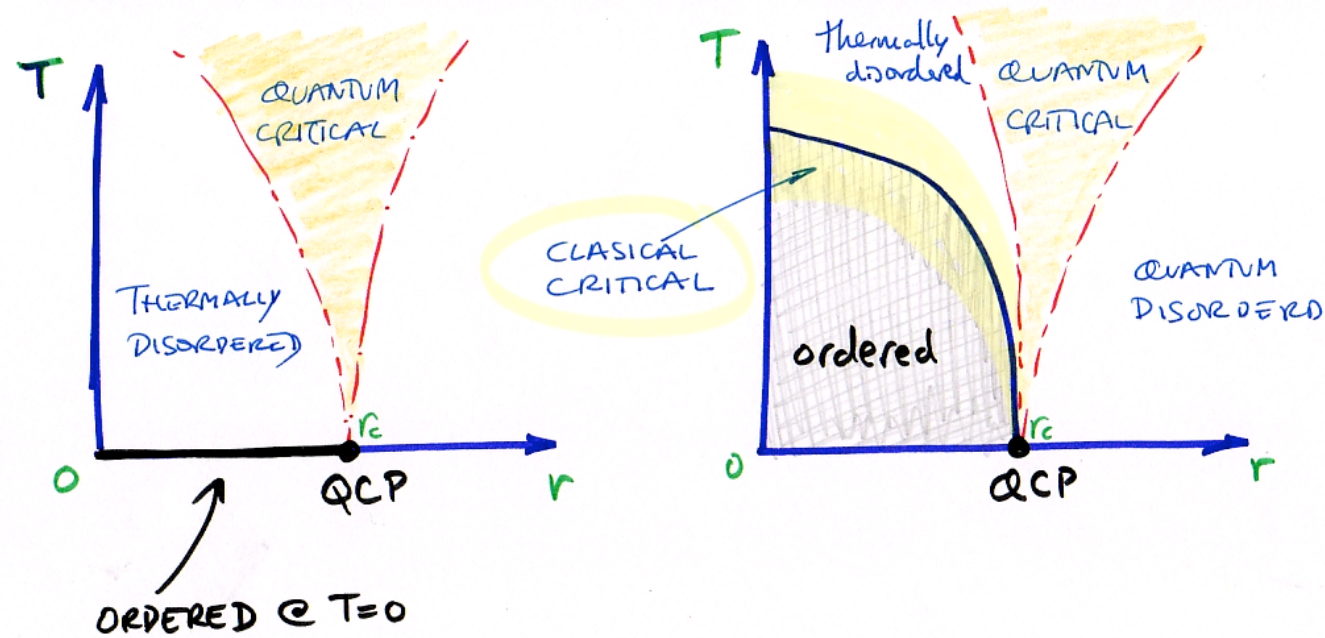 T
QUANTUM
CRITICAL
THERMALLY
DISORDERED
rc
0
QCP
r
ORDERED @ T=0
T
thermally
disordered
QUANTUM
CRITICAL
CLASICAL
CRITICAL
QUANTUM
DISORDERD
ordered
rc
0
QCP
r